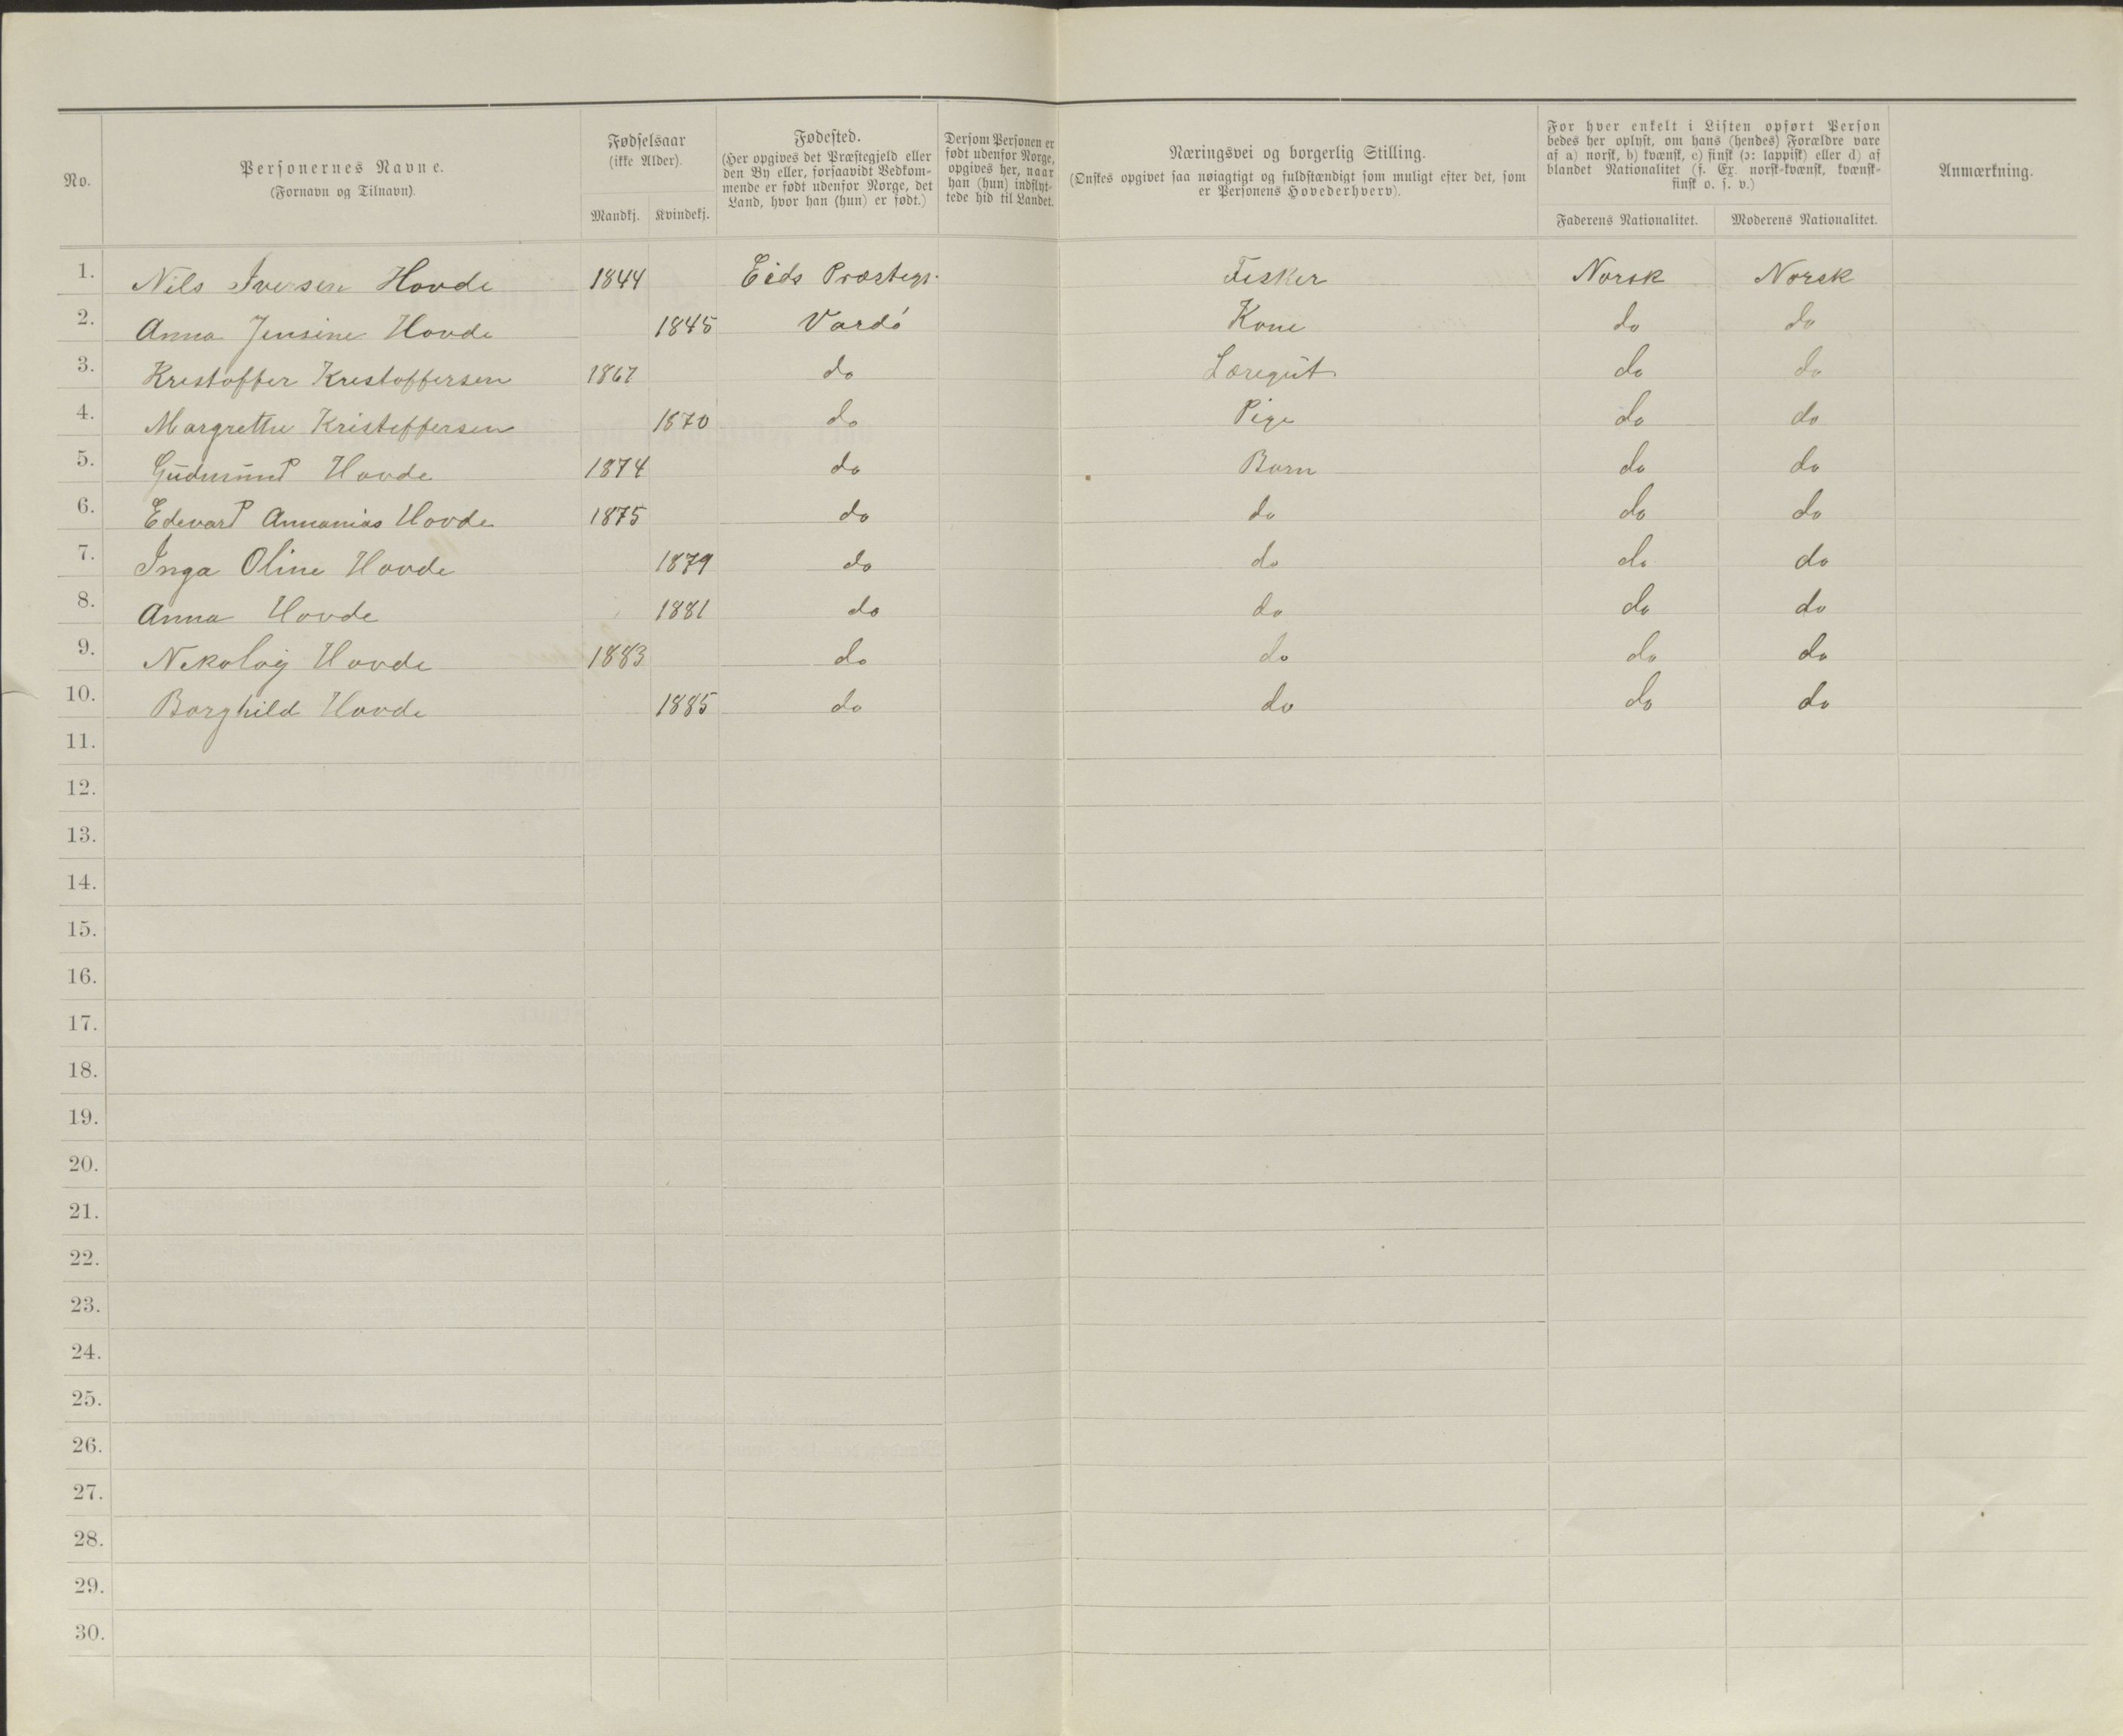 No.
Personernes Navne.
(Fornavn og Tilnavn).
Fødselsaar
(ikke Alder).
Mandkj. Kvindekj.
Fødested.
(Her opgives det Præstegjeld eller
den By eller, forsaavidt Vedkom-
mende er født udenfor Norge, det
Land, hvor han (hun) er født.)
Dersom Personen er
født udenfor Norge,
opgives her, naar
han (hun) indflyt-
tede hid til Landet.
Næringsvei og borgerlig Stilling.
(Ønskes opgivet saa nøiagtigt og fuldstændigt som muligt efter det, som
er Personens Hovederhverv).
For hver enkelt i Listen opført Person
bedes her oplyst, om hans (hendes) Forældre vare
af a) norsk, b) kvænsk, c) finsk (ɔ: lappisk) eller d) af
blandet Nationalitet (f. Ex. norsk-kvænsk, kvænsk-
finsk o. s. v.)
Faderens Nationalitet. Moderens Nationalitet.
Anmærkning.
1. Nils Iversen Hovde 1844 Eids Præstegj. Fisker Norsk Norsk
2. Anna Jensine Hovde 1845 Vardö Kone do do
3. Kristoffer Kristoffersen 1867 do Læregut do do
4. Margrethe Kristoffersen 1870 do Pige do do
5. Gudmund Hovde 1874 do Barn do do
6. Edevard Annanias Hovde 1875 do do do do
7. Inga Oline Hovde 1879 do do do do
8. Anna Hovde 1881 do do do do
9. Nikolaj Hovde 1883 do do do do
10. Borghild Hovde 1885 do do do do
11.
12.
13.
14.
15.
16.
17.
18.
19.
20.
21.
22.
23.
24.
25.
26.
27.
28.
29.
30.